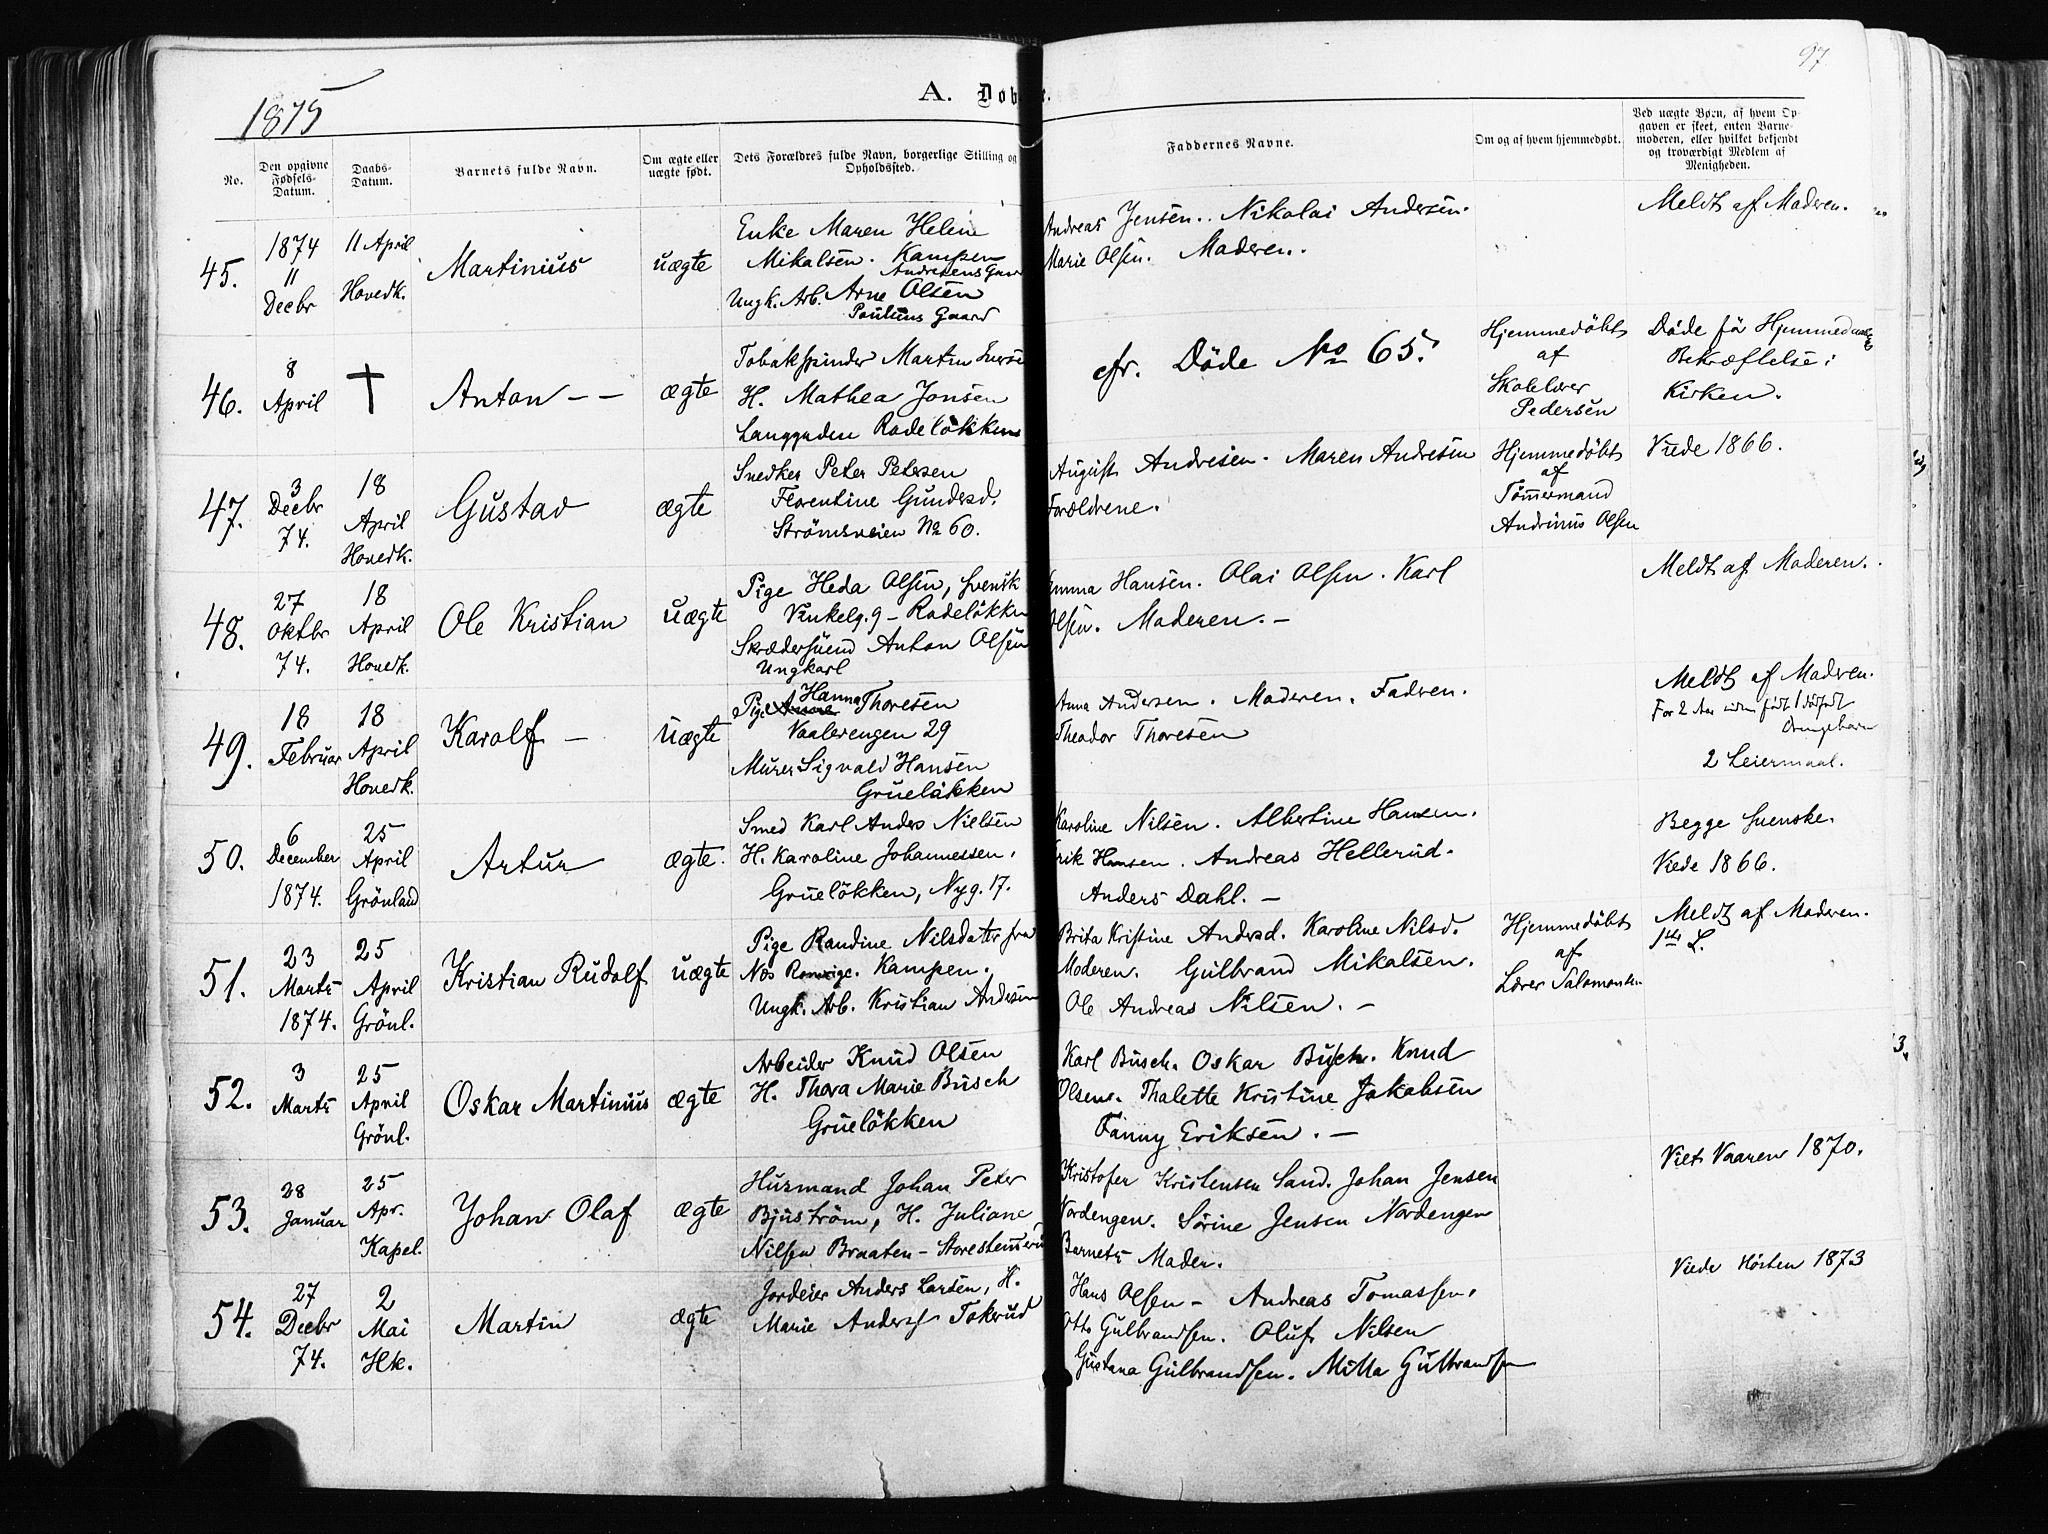 97
1875
A. Døb
Den opgivne Fødsels-Datum.
Daabs-Datum.
No.
Barnets fulde Navn.
Om ægte eller uægte født.
Dets Forældres fulde Navn, borgerlige Stilling og Opholdssted.
Faddernes Navne.
Om og af hvem hjemmedøbt.
Ved uægte Børn, af hvem Opgaven er skeet, enten Barnemoderen, eller hvilket bekjendt og troværdigt Medlem af Menigheden.
45.
1874
11
Decbr
11 April
Hovedk.
Martinius
uægte
Enke Maren Helene
Mikalsen. Kampen
Andresens Gaard
Ungk. Arb. Arne Olsen
Paulius Gaard
Andreas Jensen. Nikolai Andersen.
Marie Olsen. Moderen.
Meldt af Moderen.
46.
8
April
†
Anton - -
ægte
Tobakspinder Martin
H. Mathea Jonsen
Langgaden Rodeløkken
cfr. Døde No 65.
Hjemmedøbt
af
Skolelærer
Pedersen
Døde før
Bekræftelse i
Kirken.
47.
3
Decbr
74.
18
April
Hovedk.
Gustav
ægte
Snedker Peter Petersen
Florentine Gundersd.
Strømsveien No 60.
August Andresen. Maren Andresen
Forældrene.
Hjemmedøbt
af
Tømmermand
Andrinus Olsen
Viede 1866.
48.
27
Oktbr
74.
18
April
Hovedk.
Ole Kristian
uægte
Pige Heda Olsen, svensk
Vinkelg. 9 - Rodeløkken
Skrædersvend Anton Olsen
Ungkarl
Emma Hansen. Olai Olsen. Karl
Olsen. Moderen. -
Meldt af Moderen.
49.
18
Februar
18
April
Hovedk.
Karolf -
uægte
Hanna
Pige Thoresen
Vaalerengen 29
Murer Sigvald Hansen
Grueløkken
Anna Andersen. Moderen. Fadren.
Theodor Thoresen
Meldt af Moderen.
For 2 Aar siden født 1 dødfødt
Drengebarn
2 Leiermaal.
50.
6
December
1874.
25
April
Grønland
Artur
ægte.
Smed Karl Anders Nielsen
H. Karoline Johannessen.
Grueløkken, Nyg. 17.
Karoline Nilsen. Albertine Hansen.
Erik Hansen. Andreas Hellerud.
Anders Dahl. -
Begge svenske.
Viede 1866.
51.
23
Marts
1874.
25
April
Grønl.
Kristian Rudolf
uægte
Pige Randine Nilsdatter fra
Næs Romerige. Kampen.
Ungk. Arb. Kristian Andersen
Brita Kristine Andersd. Karoline Nilsd.
Moderen. Gulbrand Mikalsen.
Ole Andreas Nilsen. -
Hjemmedøbt
af
Lærer Salomonsen
Meldt af Moderen.
1ste L.
52.
3
Marts
25
April
Grønl.
Oskar Martinius
ægte
Arbeider Knud Olsen
H. Thora Marie Busch
Grueløkken
Karl Busch. Oskar Busch. Knud
Olsen. Thalette Kristine Jakobsen
Fanny Eriksen. -
53.
28
Januar
25
Apr.
Kapel.
Johan Olaf
ægte
Husmand Johan Peter
Bjuström, H. Juliane
Nilsen Braaten - Storestensrud
Kristofer Kristensen Sand. Johan Jensen
Nordengen. Sørine Jensen Nordengen
Barnets Moder.
Viet Vaaren 1870.
54.
27
Decbr
74.
2
Mai
Hk.
Martin
ægte
Jordeier Anders Larsen, H.
Marie Anders. Tokerud
Hans Olsen - Andreas Tomassen.
Otto Gulbrandsen. Oluf Nilsen
Gustava Gulbrandsen. Milla Gulbrandsen
Viede Høsten 1873